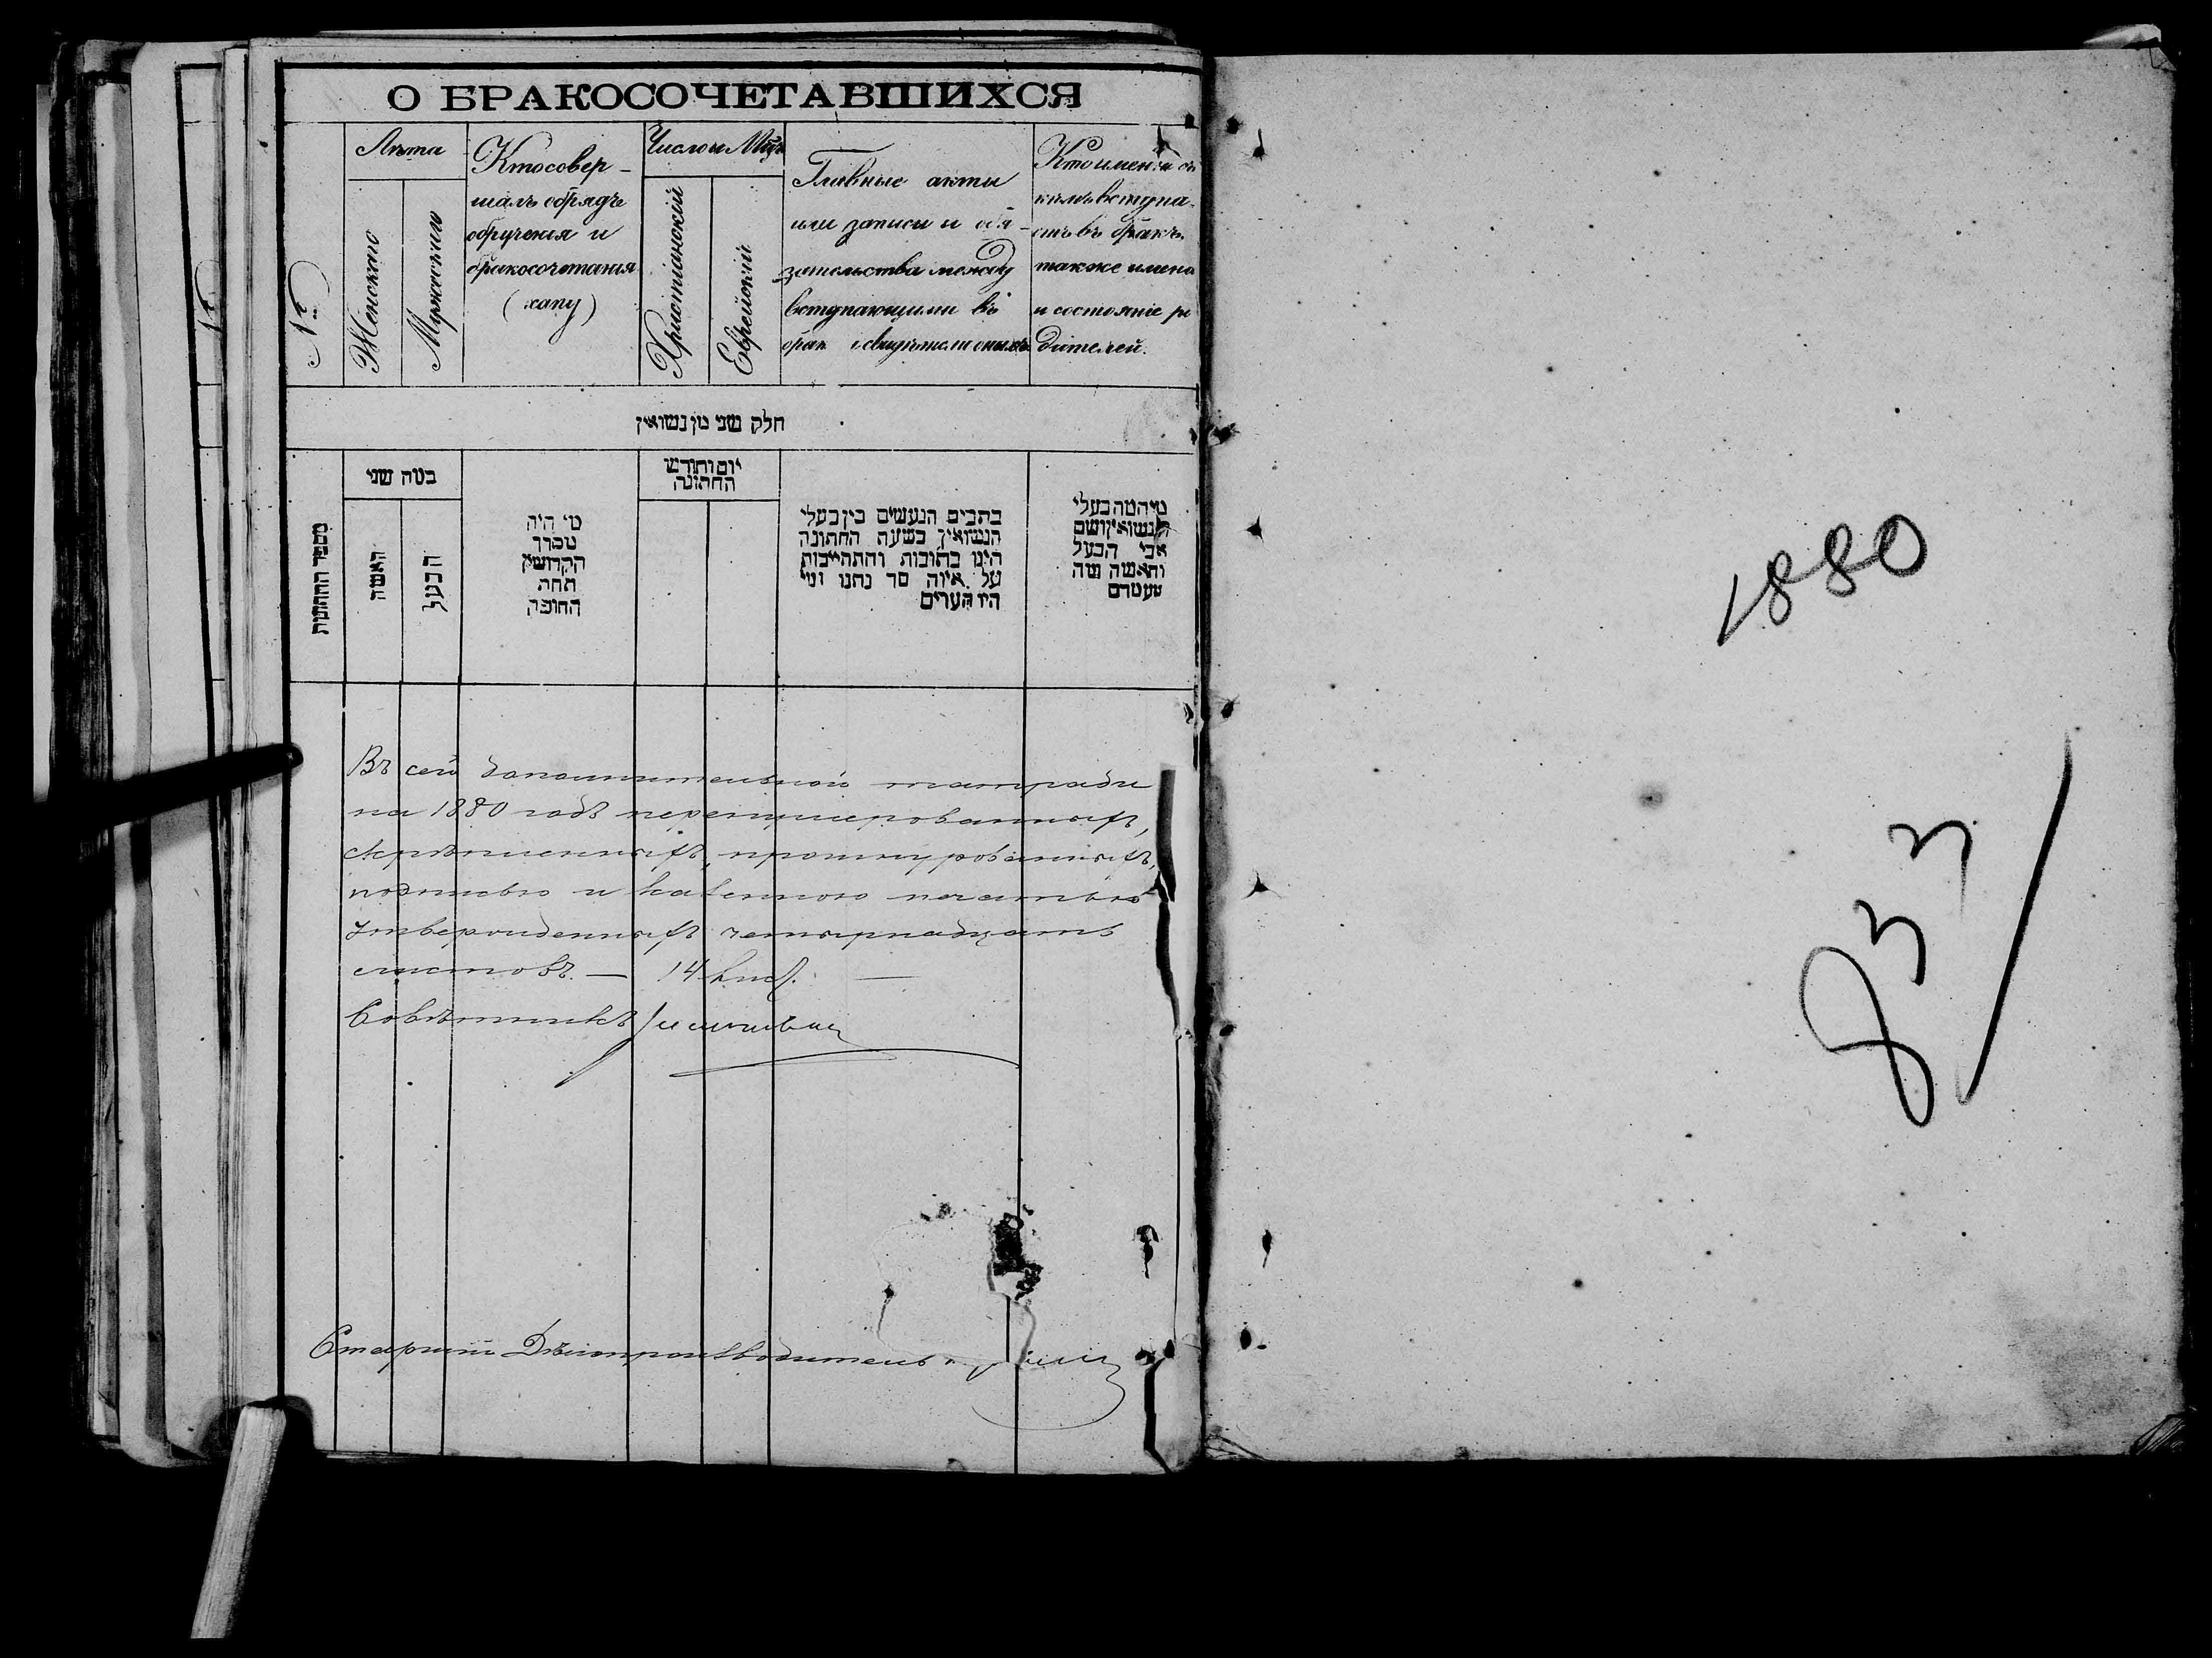 О БРАКОСОЧЕТАВШИХСЯ
№
Лѣта
Женскаго
Мужескаго
Кто совер-
шалъ обрядъ
обрученія и
бракосочетанія
(хапу)
Число и Мѣц
Христіанскій
Еврейскій
Главные акты
или записи и обя-
зательства между
вступающими въ
брак и свидѣтели оныхъ
Кто именно съ
кѣмъ вступа-
етъ въ бракъ.
также имена
и состояніе ро
дителей.
חלק שני מן נשואין
מספר החתונות
במה שני
האשה
הבעל
מי היה
מסדר
הקדושין
תחת
החופה
יום וחודש
החתונה
כתבים הנעשים בין בעלי
הנשואין בשעת החתונה
היינו כתובות והתחייבות
על איזה סך נתנו ומי
היו העדים
מי המה בעלי
הנשואין ושם
אבי הבעל
והאשה ומה
מעמדם
Въ сей дополнительной тетради
на 1880 годъ перенумерованныхъ,
скрѣпленныхъ, прошнурованныхъ,
подписью и казенною печатью
утвержденныхъ четырнадцать
листовъ. — 14 лис. —
Совѣтникъ
Старшій Дѣлопроизводитель
1880
833